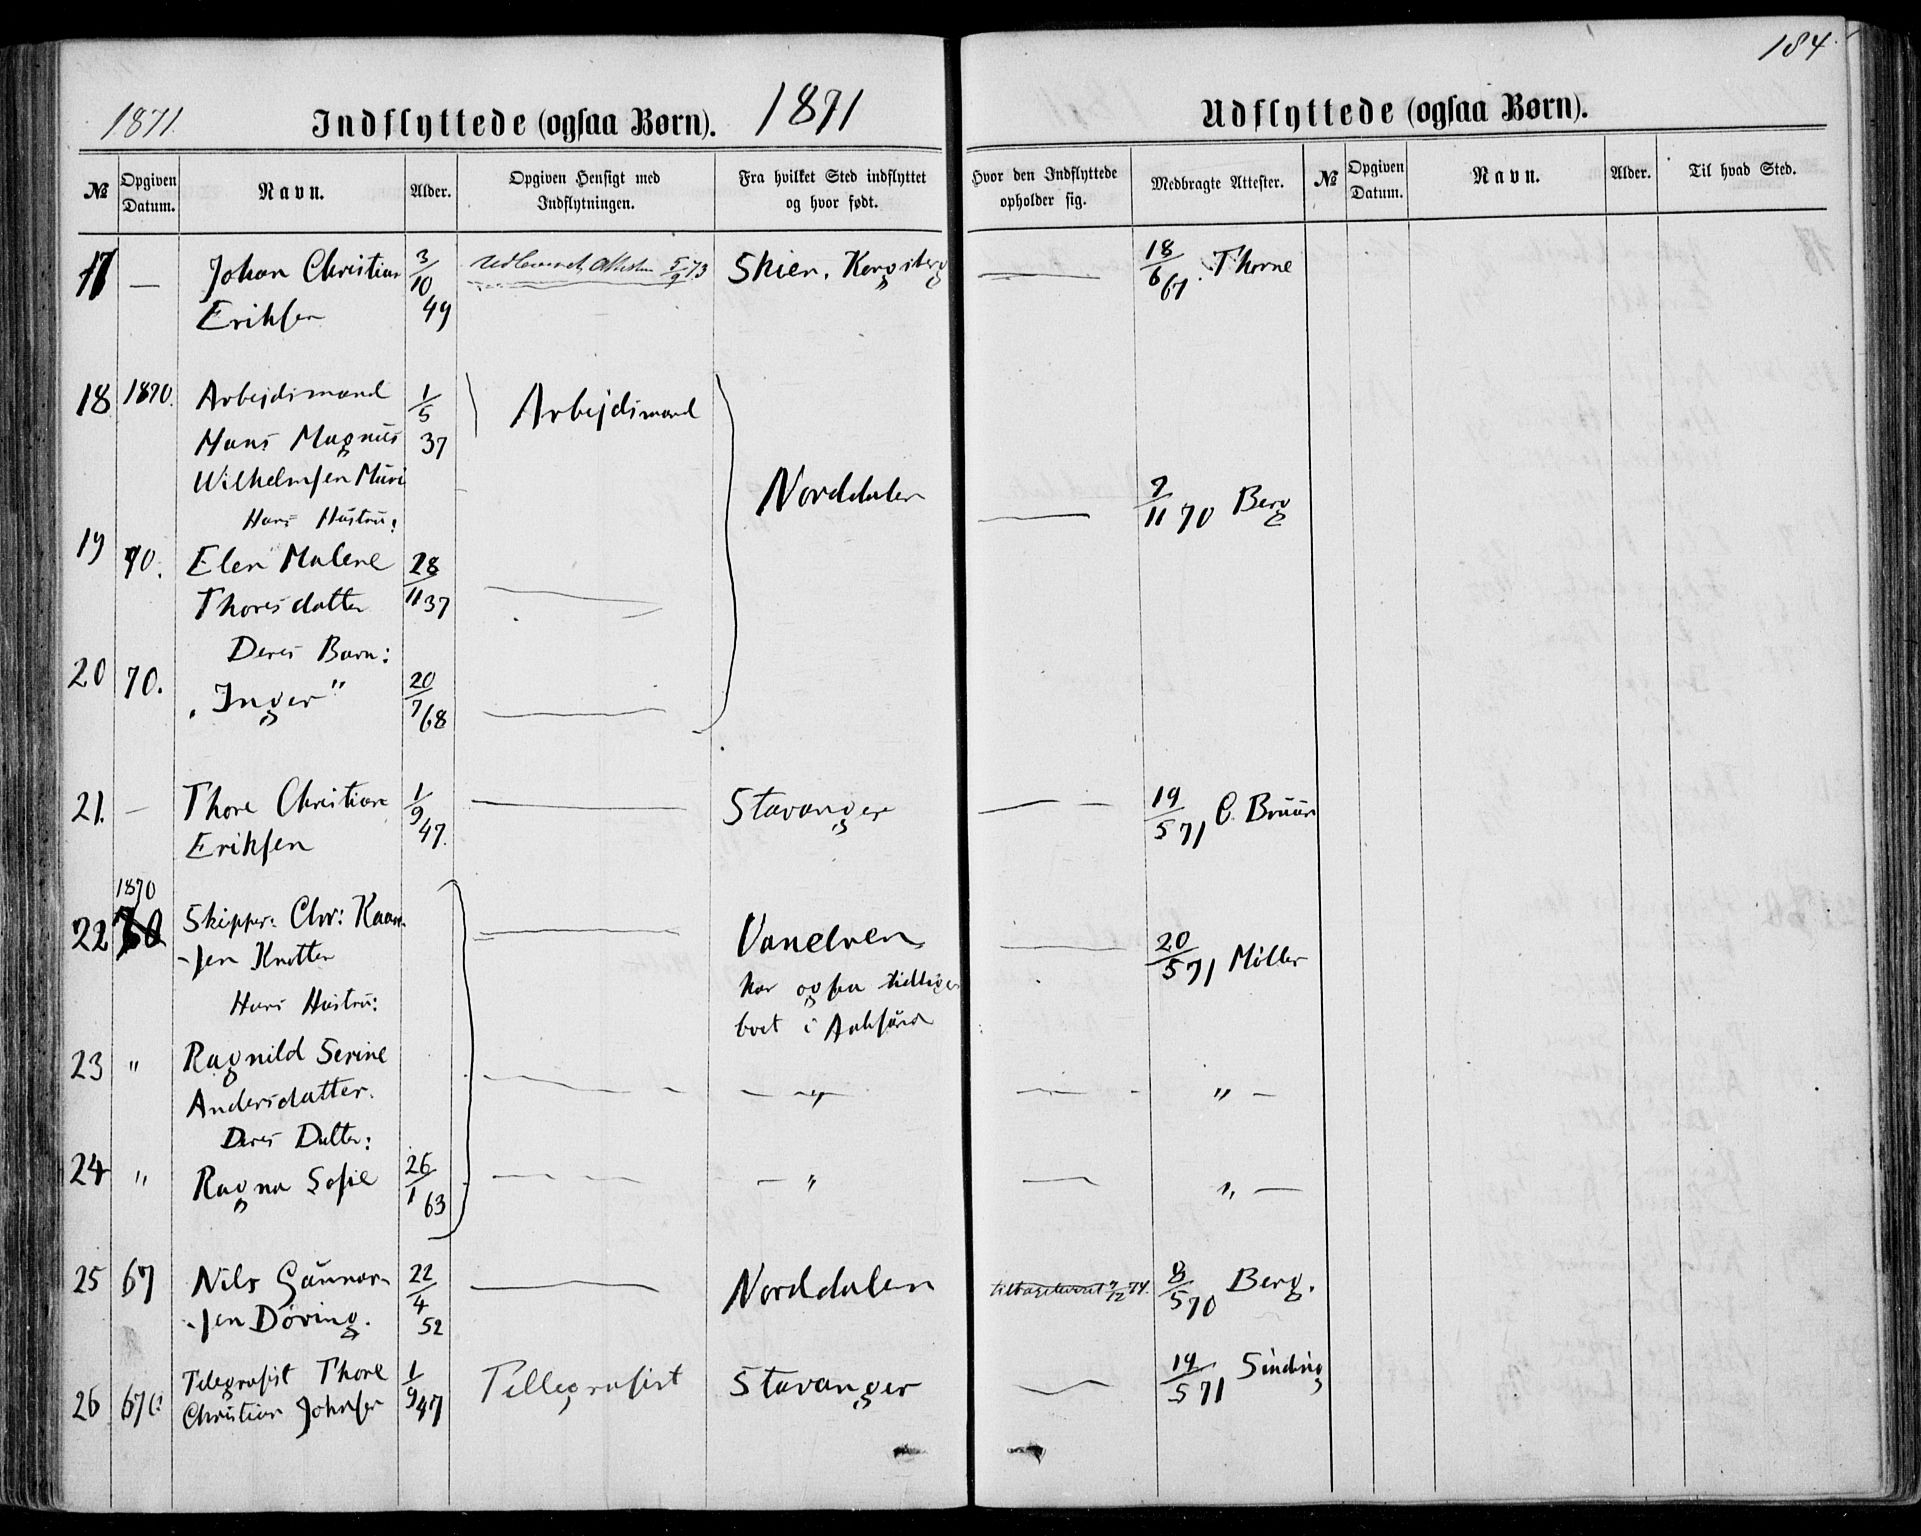 184
1871.
Indflyttede (ogsaa Børn).
1871
Udflyttede (ogsaa Børn).
№
Opgiven Datum.
Navn.
Alder.
Opgiven Hensigt med Indflytningen.
Fra hvilket Sted indflyttet og hvor født.
Hvor den Indflyttede opholder sig.
Medbragte Attester.
№
Opgiven Datum.
Navn.
Alder.
Til hvad Sted.
17 — Johan Christian 3/10 5/9 73 Skien, Kongsberg — 18/6 67. Thorne
Eriksen 49
18 1870. Arbejdsmand 1/5 Arbejdsmand
Hans Magnus 37
Wilhelmsen Muri Norddalen — 9/11 70 Berg
Hans Hustru:
19 70. Elen Malene 28/11 37 —
Thoresdatter
Deres Barn:
20 70. "Inger" 20/7 68 —
21. — Thore Christian 1/9 47. — Stavanger — 19/5 71 C. Bruun
Eriksen
1870
22 Skipper Chr: Kaar- — Vanelven — 20/5 71 Møller
-sen Knotten har ogsaa tidligere
Hans Hustru: boet i
23 " Ragnild Serine — — " — — " —
Andersdatter.
Deres Datter:
24 " Ragna Sofie 26/1 63 — — " — " —
25 67 Nils Gunnar- 22/4 52 — Norddalen tilbageleveret 9/12 74. 8/5 70 Berg.
-sen Døving.
26 67 Telegrafist Thore 1/9 47 Tellegrafist Stavanger — 19/5 71 Sinding
Christian Johnsen